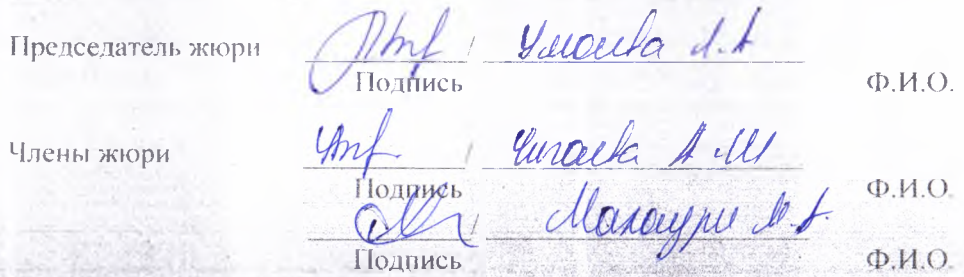 Председатель жюри / Умаева А.А
Подпись Ф.И.О.
Члены жюри / Чигаева А.Ш
Подпись Ф.И.О.
/ Малаури М.А.
Подпись Ф.И.О.